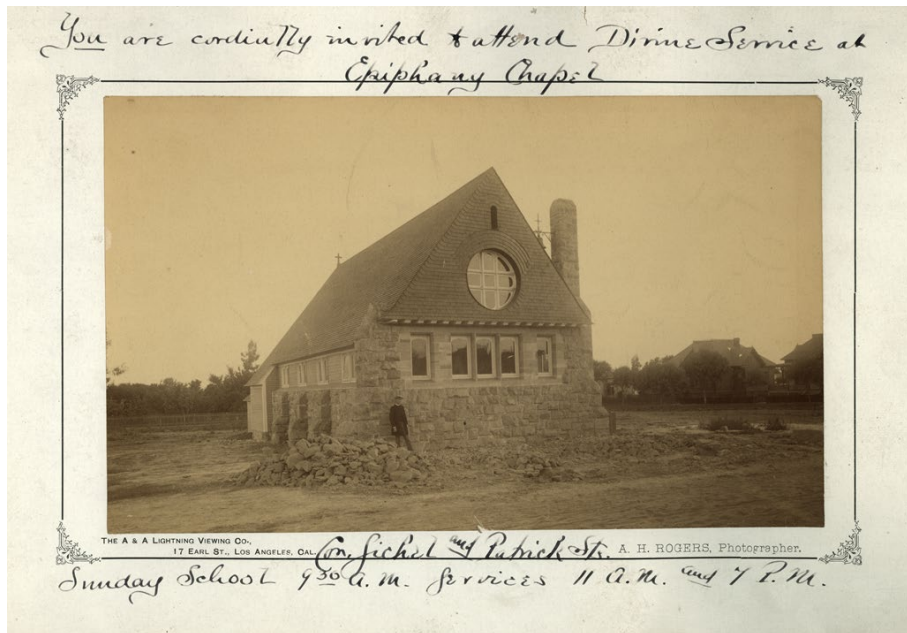 You are cordially invited to attend Divine Service at
Epiphany Chapel
THE A & A LIGHTNING VIEWING CO.,
17 EARL ST., LOS ANGELES, CAL.
Cor. Sichel and Patrick Sts.
A. H. ROGERS, Photographer.
Sunday School 9 30 A.M. Services 11 A.M. and 7 P.M.